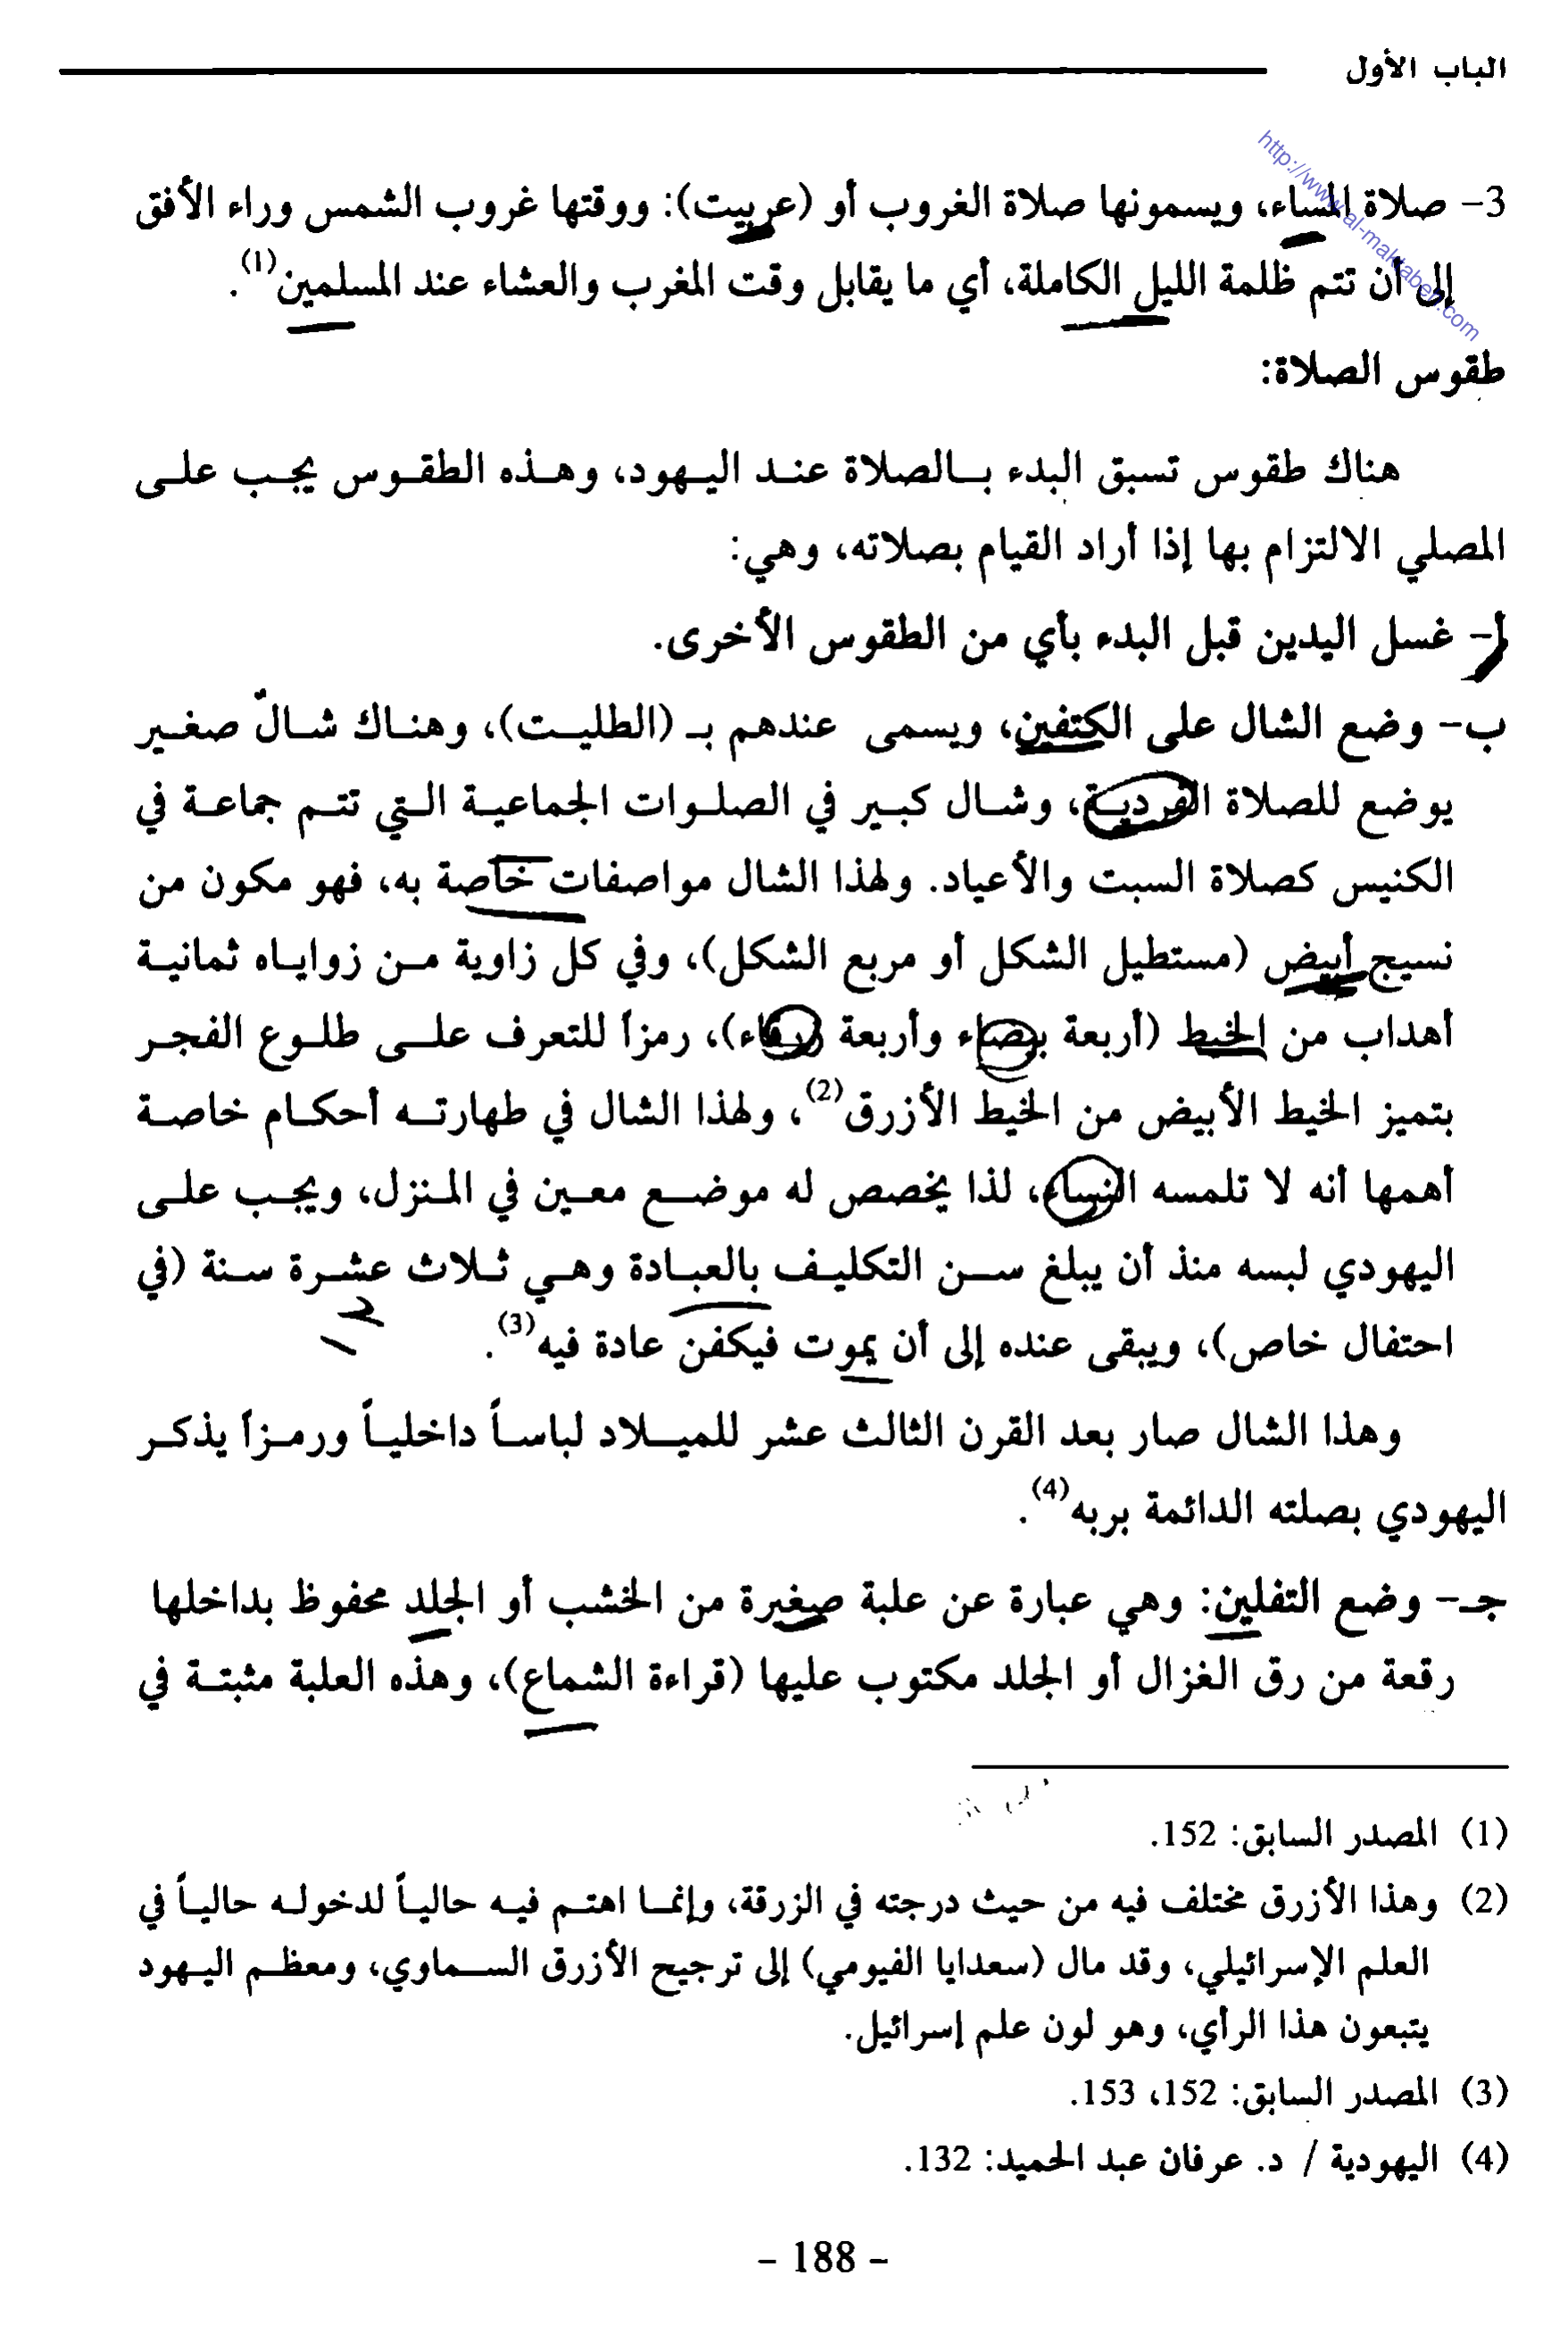 الباب الأول
http://www.al-maktabeh.com
3- صلاة المساء، ويسمونها صلاة الغروب أو (عربيت): ووقتها غروب الشمس وراء الأفق
إلى أن تتم ظلمة الليل الكاملة، أي ما يقابل وقت المغرب والعشاء عند المسلمين(1).
طقوس الصلاة:
هناك طقوس تسبق البدء بالصلاة عند اليهود، وهذه الطقوس يجب على
المصلي الالتزام بها إذا أراد القيام بصلاته، وهي:
أ- غسل اليدين قبل البدء بأي من الطقوس الأخرى.
ب- وضع الشال على الكتفين، ويسمى عندهم بـ (الطليت)، وهناك شالٌ صغير
يوضع للصلاة الفردية، وشال كبير في الصلوات الجماعية التي تتم جماعة في
الكنيس كصلاة السبت والأعياد. ولهذا الشال مواصفات خاصة به، فهو مكون من
نسيج أبيض (مستطيل الشكل أو مربع الشكل)، وفي كل زاوية من زواياه ثمانية
أهداب من الخيط (أربعة بيضاء وأربعة زرقاء)، رمزاً للتعرف على طلوع الفجر
بتميز الخيط الأبيض من الخيط الأزرق(2)، ولهذا الشال في طهارته أحكام خاصة
أهمها أنه لا تلمسه النساء، لذا يخصص له موضع معين في المنزل، ويجب على
اليهودي لبسه منذ أن يبلغ سن التكليف بالعبادة وهي ثلاث عشرة سنة (في
احتفال خاص)، ويبقى عنده إلى أن يموت فيكفن عادة فيه(3).
وهذا الشال صار بعد القرن الثالث عشر للميلاد لباساً داخلياً ورمزاً يذكر
اليهودي بصلته الدائمة بربه(4).
جـ- وضع التفلين: وهي عبارة عن علبة صغيرة من الخشب أو الجلد محفوظ بداخلها
رقعة من رق الغزال أو الجلد مكتوب عليها (قراءة الشماع)، وهذه العلبة مثبتة في
(1) المصدر السابق: 152.
(2) وهذا الأزرق مختلف فيه من حيث درجته في الزرقة، وإنما اهتم فيه حالياً لدخوله حالياً في
العلم الإسرائيلي، وقد مال (سعدايا الفيومي) إلى ترجيح الأزرق السماوي، ومعظم اليهود
يتبعون هذا الرأي، وهو لون علم إسرائيل.
(3) المصدر السابق: 152، 153.
(4) اليهودية / د. عرفان عبد الحميد: 132.
- 188 -